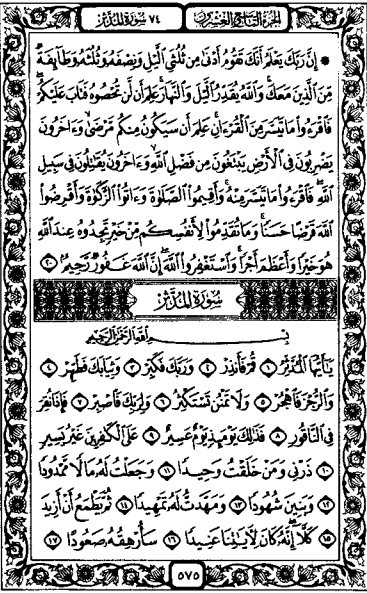 الجزء التاسع والعشرون
٧٤ سورة المدثر
۞ إِنَّ رَبَّكَ يَعْلَمُ أَنَّكَ تَقُومُ أَدْنَىٰ مِن ثُلُثَىِ ٱلَّيْلِ وَنِصْفَهُۥ وَثُلُثَهُۥ وَطَآئِفَةٌ
مِّنَ ٱلَّذِينَ مَعَكَ ۚ وَٱللَّهُ يُقَدِّرُ ٱلَّيْلَ وَٱلنَّهَارَ ۚ عَلِمَ أَن لَّن تُحْصُوهُ فَتَابَ عَلَيْكُمْ ۖ
فَٱقْرَءُوا۟ مَا تَيَسَّرَ مِنَ ٱلْقُرْءَانِ ۚ عَلِمَ أَن سَيَكُونُ مِنكُم مَّرْضَىٰ ۙ وَءَاخَرُونَ
يَضْرِبُونَ فِى ٱلْأَرْضِ يَبْتَغُونَ مِن فَضْلِ ٱللَّهِ ۙ وَءَاخَرُونَ يُقَٰتِلُونَ فِى سَبِيلِ
ٱللَّهِ ۖ فَٱقْرَءُوا۟ مَا تَيَسَّرَ مِنْهُ ۚ وَأَقِيمُوا۟ ٱلصَّلَوٰةَ وَءَاتُوا۟ ٱلزَّكَوٰةَ وَأَقْرِضُوا۟
ٱللَّهَ قَرْضًا حَسَنًا ۚ وَمَا تُقَدِّمُوا۟ لِأَنفُسِكُم مِّنْ خَيْرٍ تَجِدُوهُ عِندَ ٱللَّهِ
هُوَ خَيْرًا وَأَعْظَمَ أَجْرًا ۚ وَٱسْتَغْفِرُوا۟ ٱللَّهَ ۖ إِنَّ ٱللَّهَ غَفُورٌ رَّحِيمٌۢ ٢٠
سورة المدثر
بِسْمِ ٱللَّهِ ٱلرَّحْمَٰنِ ٱلرَّحِيمِ
يَٰٓأَيُّهَا ٱلْمُدَّثِّرُ ١ قُمْ فَأَنذِرْ ٢ وَرَبَّكَ فَكَبِّرْ ٣ وَثِيَابَكَ فَطَهِّرْ ٤
وَٱلرُّجْزَ فَٱهْجُرْ ٥ وَلَا تَمْنُن تَسْتَكْثِرُ ٦ وَلِرَبِّكَ فَٱصْبِرْ ٧ فَإِذَا نُقِرَ
فِى ٱلنَّاقُورِ ٨ فَذَٰلِكَ يَوْمَئِذٍ يَوْمٌ عَسِيرٌ ٩ عَلَى ٱلْكَٰفِرِينَ غَيْرُ يَسِيرٍ
١٠ ذَرْنِى وَمَنْ خَلَقْتُ وَحِيدًا ١١ وَجَعَلْتُ لَهُۥ مَالًا مَّمْدُودًا
١٢ وَبَنِينَ شُهُودًا ١٣ وَمَهَّدتُّ لَهُۥ تَمْهِيدًا ١٤ ثُمَّ يَطْمَعُ أَنْ أَزِيدَ
١٥ كَلَّآ ۖ إِنَّهُۥ كَانَ لِءَايَٰتِنَا عَنِيدًا ١٦ سَأُرْهِقُهُۥ صَعُودًا ١٧
٥٧٥